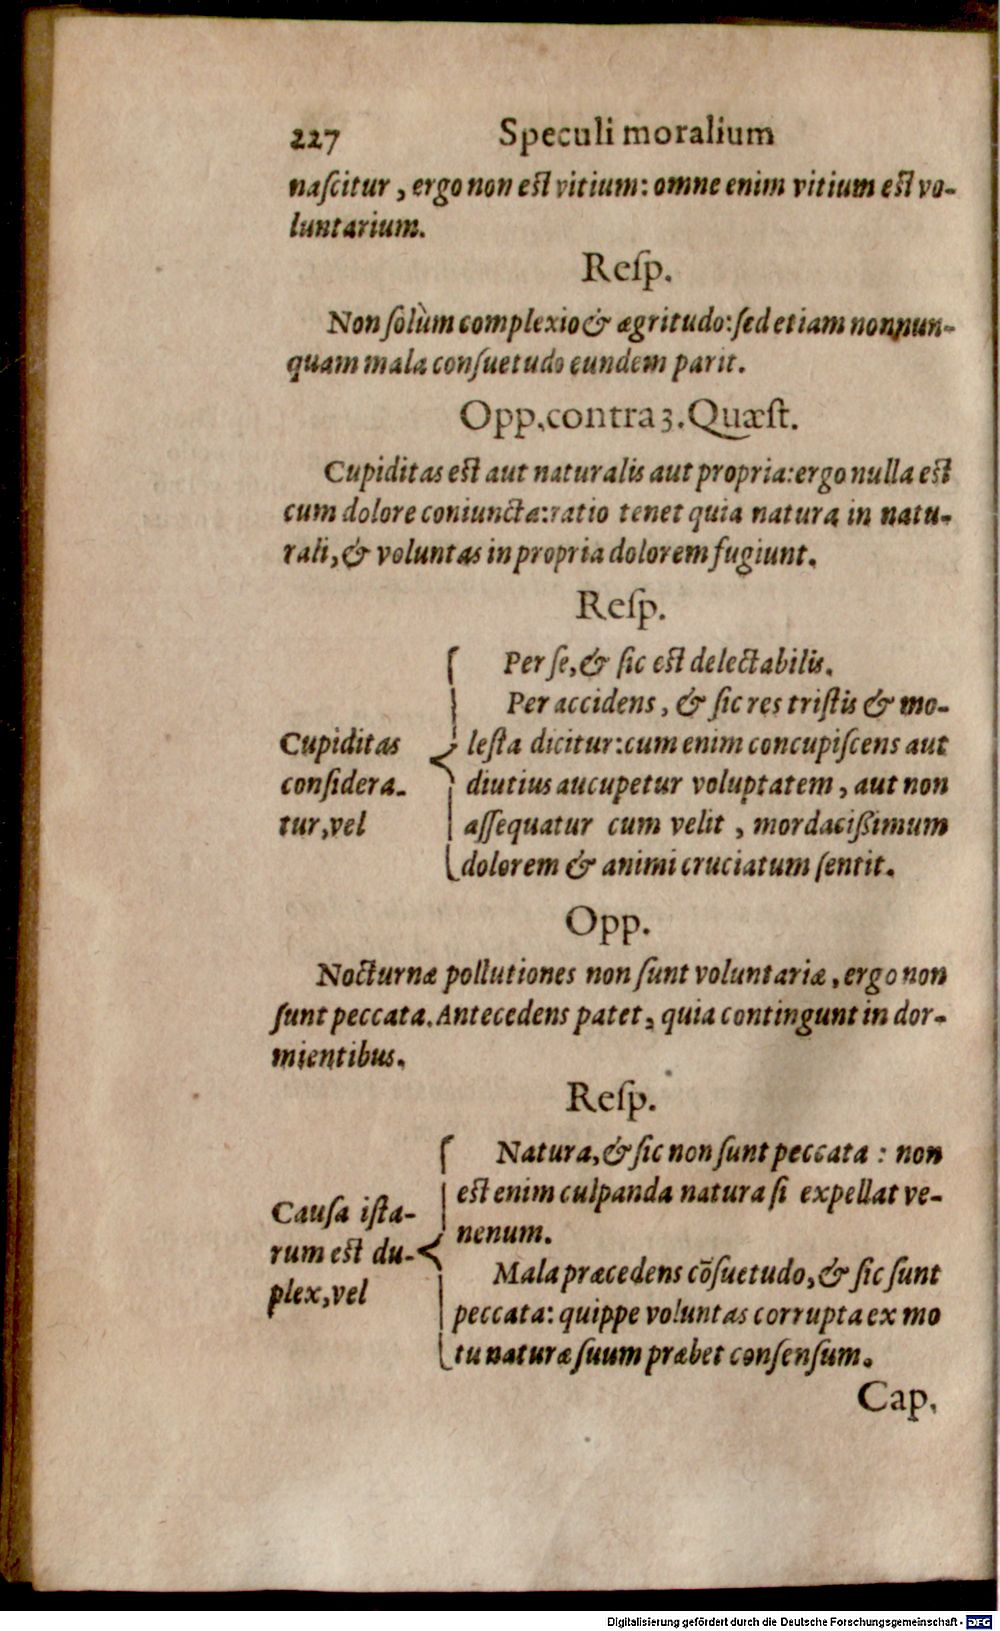 227 Speculi moralium
naſcitur, ergo non est vitium: omne enim vitium est vo-
luntarium.
Reſp.
Non ſolùm complexio & ægritudo: ſed etiam nonnun-
quam mala conſuetudo eundem parit.
Opp. contra 3. Quæst.
Cupiditas est aut naturalis aut propria: ergo nulla est
cum dolore coniuncta: ratio tenet quia natura in natu-
rali, & voluntas in propria dolorem fugiunt.
Reſp.
Cupiditas
conſidera-
tur, vel
Per ſe, & ſic est delectabilis.
Per accidens, & ſic res triſtis & mo-
leſta dicitur: cum enim concupiſcens aut
diutius aucupetur voluptatem, aut non
aſſequatur cum velit, mordacißimum
dolorem & animi cruciatum ſentit.
Opp.
Nocturnæ pollutiones non ſunt voluntariæ, ergo non
ſunt peccata. Antecedens patet, quia contingunt in dor-
mientibus.
Reſp.
Cauſa iſta-
rum est du-
plex, vel
Natura, & ſic non ſunt peccata: non
est enim culpanda natura ſi expellat ve-
nenum.
Mala præcedens cōſuetudo, & ſic ſunt
peccata: quippe voluntas corrupta ex mo
tu naturæ ſuum præbet conſenſum.
Cap.
Digitalisierung gefördert durch die Deutsche Forschungsgemeinschaft - DFG